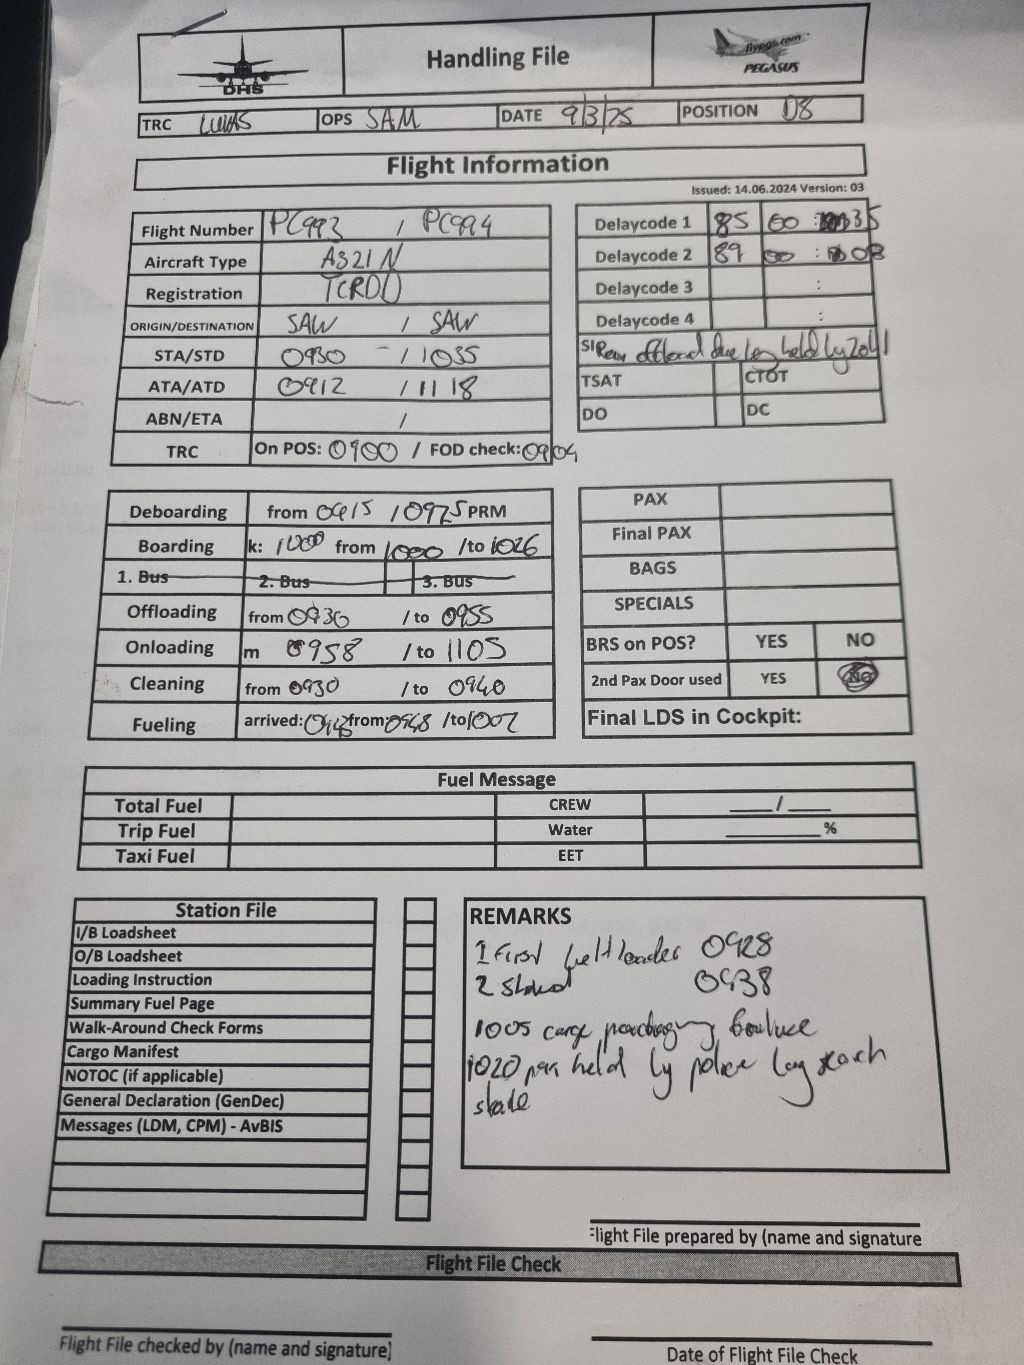 DHS
Handling File
flypgs.com
PEGASUS
TRC LUKAS OPS SAM DATE 9/3/25 POSITION D8
Flight Information
Issued: 14.06.2024 Version: 03
Flight Number PC993 / PC994
Aircraft Type A321N
Registration TCRDO
ORIGIN/DESTINATION SAW / SAW
STA/STD 0930 / 1035
ATA/ATD 0912 / 1118
ABN/ETA /
TRC On POS: 0900 / FOD check: 0904
Delaycode 1 85 00 : 35
Delaycode 2 89 00 : 08
Delaycode 3 :
Delaycode 4 :
SI offload due bag held by Zoll
TSAT CTOT
DO DC
Deboarding from 0915 / 0925 PRM
Boarding k: 1000 from 1000 /to 1026
1. Bus 2. Bus 3. Bus
Offloading from 0930 / to 0955
Onloading m 0958 / to 1105
Cleaning from 0930 / to 0940
Fueling arrived: from 0948 /to 1007
PAX
Final PAX
BAGS
SPECIALS
BRS on POS? YES NO
2nd Pax Door used YES NO
Final LDS in Cockpit:
Fuel Message
Total Fuel CREW ____/____
Trip Fuel Water _________%
Taxi Fuel EET
Station File
I/B Loadsheet
O/B Loadsheet
Loading Instruction
Summary Fuel Page
Walk-Around Check Forms
Cargo Manifest
NOTOC (if applicable)
General Declaration (GenDec)
Messages (LDM, CPM) - AvBIS
REMARKS
1 First belt loader 0928
2 0938
1005 cargo
1020 pax held by police bag search
Flight File prepared by (name and signature
Flight File Check
Flight File checked by (name and signature)
Date of Flight File Check